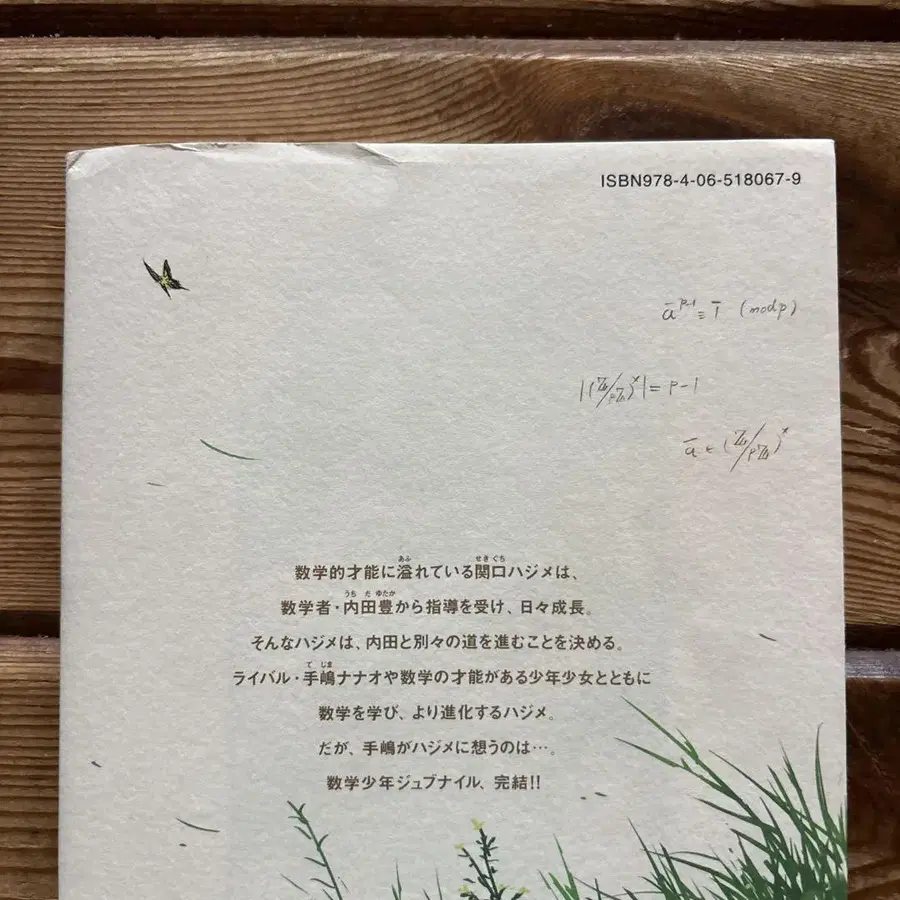 ISBN978-4-06-518067-9
ā^{p-1} ≡ 1̄ (mod p)
|(ℤ/pℤ)^×| = p-1
ā ∈ (ℤ/pℤ)^×
数学的才能に溢れている関口ハジメは、
数学者・内田豊から指導を受け、日々成長。
そんなハジメは、内田と別々の道を進むことを決める。
ライバル・手嶋ナナオや数学の才能がある少年少女とともに
数学を学び、より進化するハジメ。
だが、手嶋がハジメに想うのは…。
数学少年ジュブナイル、完結!!